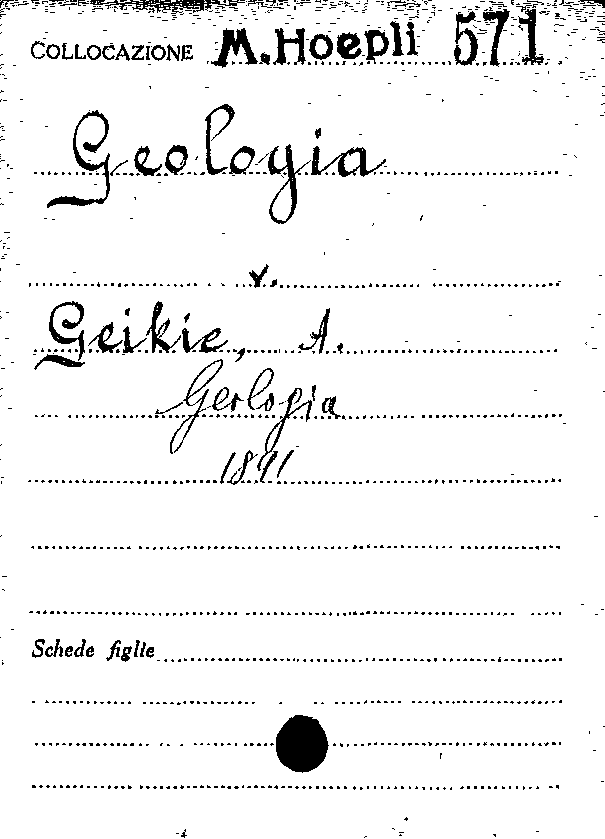 COLLOCAZIONE M.Hoepli 571
Geologia
v.
Geikie, A.
Geologia
1891
Schede figlie